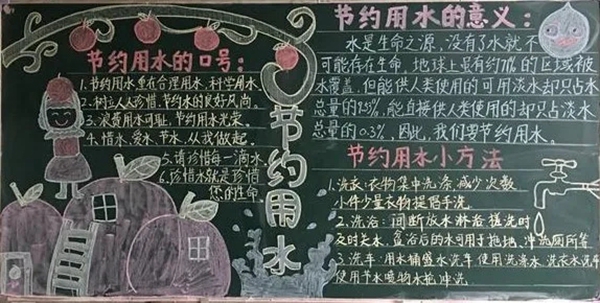 节约用水的口号:
1.节约用水重在合理用水,科学用水。
2.树立人人珍惜、节约水的良好风尚。
3.浪费用水可耻,节约用水光荣。
4.惜水、爱水、节水,从我做起。
5.请珍惜每一滴水。
6.珍惜水就是珍惜
您的生命。
节约用水
节约用水的意义:
水是生命之源,没有了水就不
可能存在生命.地球上虽有约71%的区域被
水覆盖,但能供人类使用的可用淡水却只占水
总量的2.53%,能直接供人类使用的却只占淡水
总量的0.3%,因此,我们要节约用水。
节约用水小方法
1.洗衣:衣物集中洗涤,减少次数
小件少量衣物提倡手洗。
2.洗浴:间断放水淋浴搓洗时
及时关水,盆浴后的水可用于拖地、冲洗厕所等
3.洗车:用水桶盛水洗车使用洗涤水、洗衣水洗车
使用节水喷物水枪冲洗